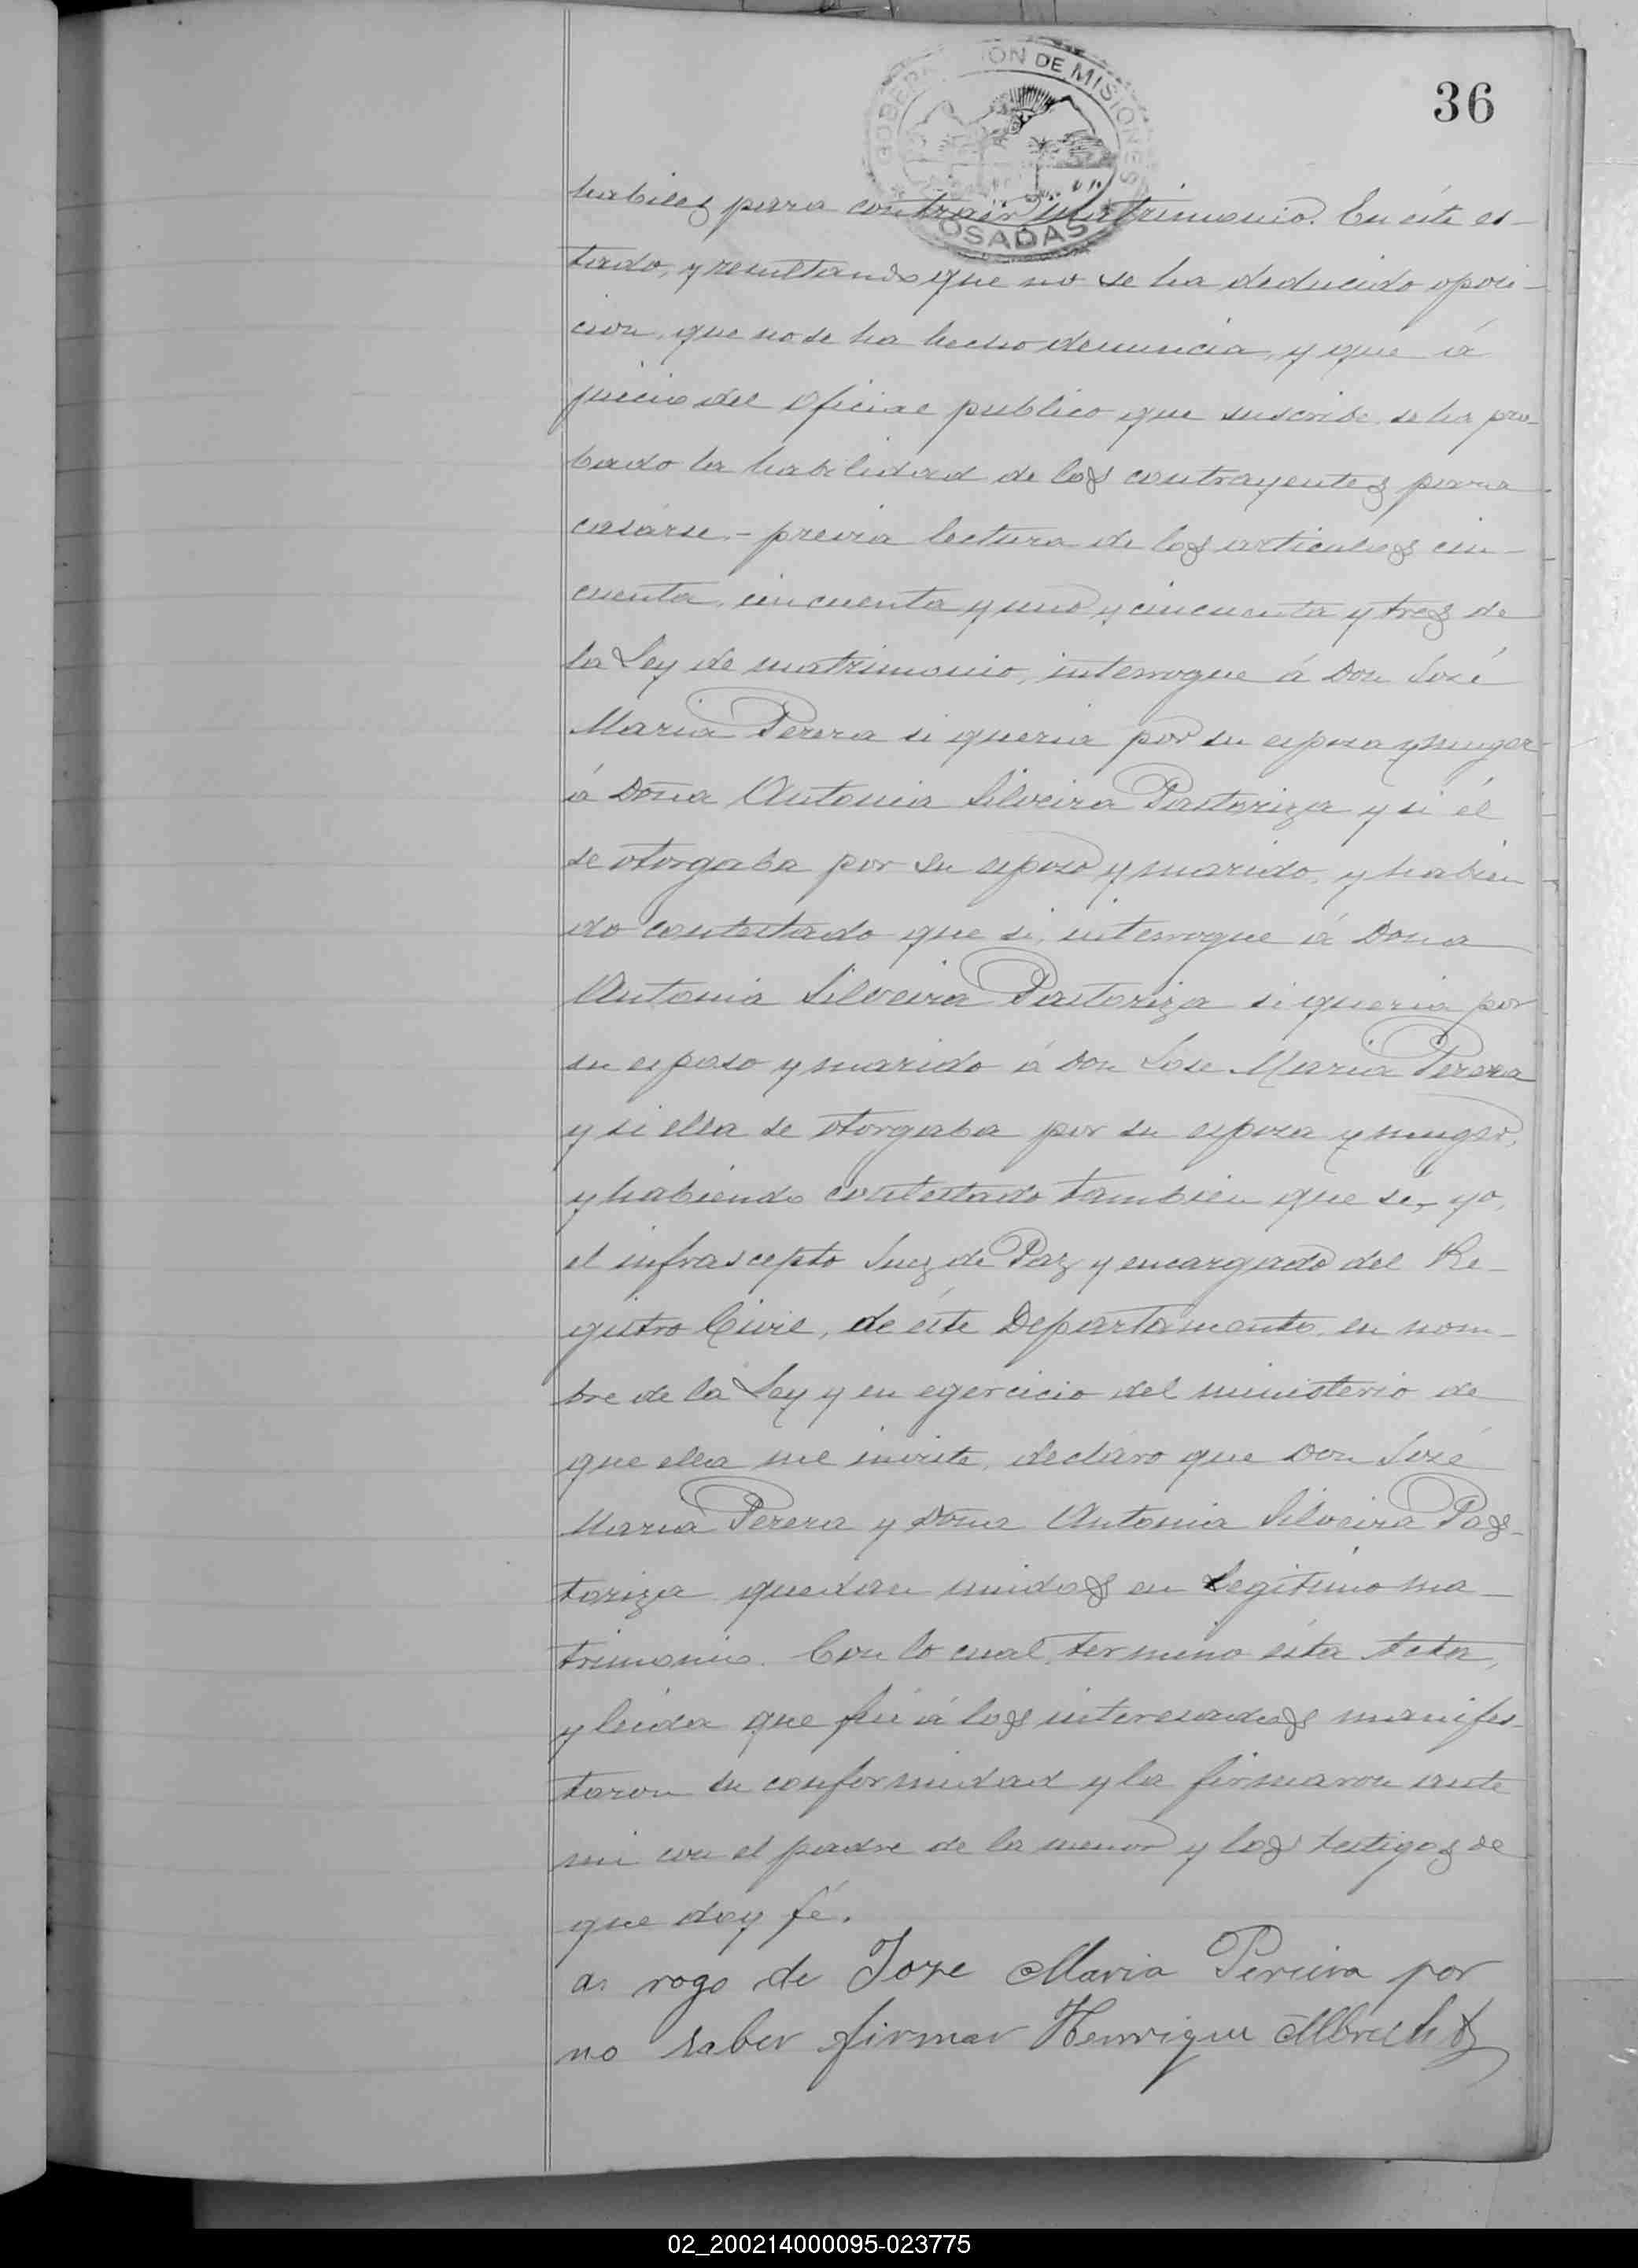 36
GOBERNACION DE MISIONES
POSADAS
habiles para contraer matrimonio. En éste es-
tado, y resultando que no se ha deducido oposi-
cion, que no se ha hecho denuncia, y que á
juicio del oficial publico que suscribe se ha pro-
bado la habilidad de los contrayentes para
casárse.- previa lectura de los articulos cin-
cuenta, cincuenta y uno y cincuenta y tres de
la Ley de matrimonio, interrogue á Don José
Maria Perera si queria por su esposa y muger
á Doña Antonia Silveira Pastoriza y si él
se otorgaba por su esposo y marido, y habien-
do contestado que si, interrogue á Dona
Antonia Silveira Pastoriza si queria por
su esposo y marido á Don Jose Maria Perera
y si ella se otorgaba por su esposa y muger,
y habiendo contestado tambien que si, yo,
el infrascepto Juez de Paz y encargado del Re-
gistro Civil, de éste Departamento, en nom-
bre de la Ley y en egercicio del ministerio de
que ella me inviste, decláro que Don José
Maria Perera y Doña Antonia Silveira Pas-
toriza quedan unidos en Legítimo ma-
trimonio. Con lo cual, termino ésta Acta,
y leida que fué á los interesados manifes-
taron su conformidad y la firmaron ante
mi con el padre de la menor y los testigos de
que doy fé.
a rogo de Joze Maria Pereira por
no saber firmar Henrique Albrecht
02_200214000095-023775